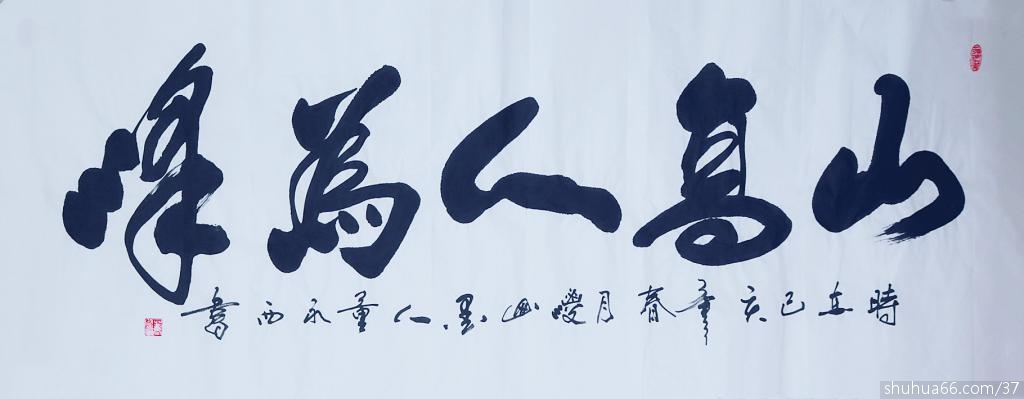 山高人為峰
時在己亥年春月嘐山墨人董永西書
shuhua66.com/37